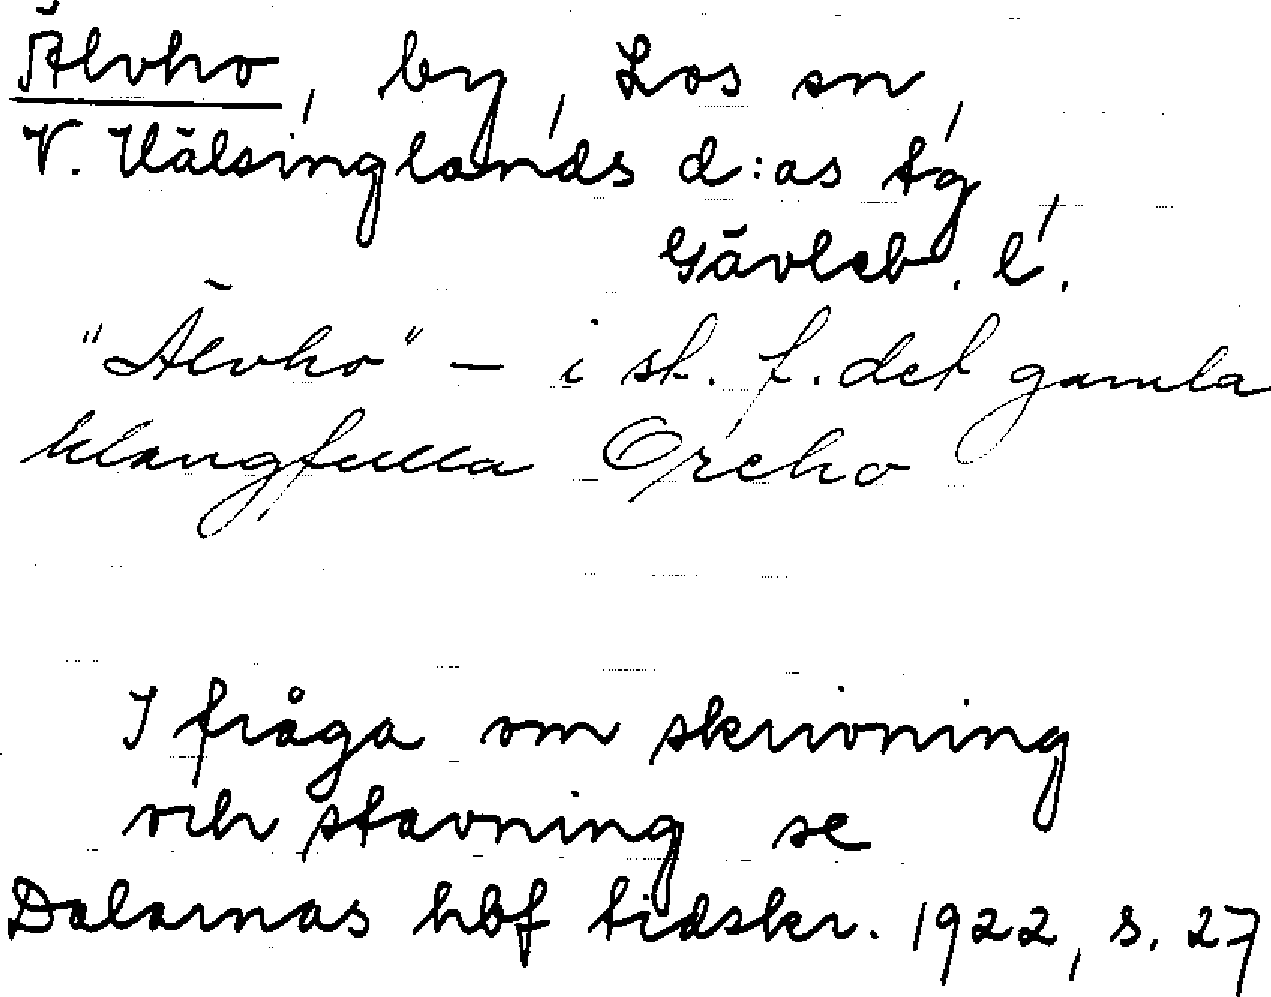 Älvho, by, Los sn,
V. Hälsinglands d:as tg,
Gävleb. l.
"Älvho" — i st. f. det gamla
klangfulla Oreho
I fråga om skrivning
och stavning se
Dalarnas hbf tidskr. 1922, s. 27